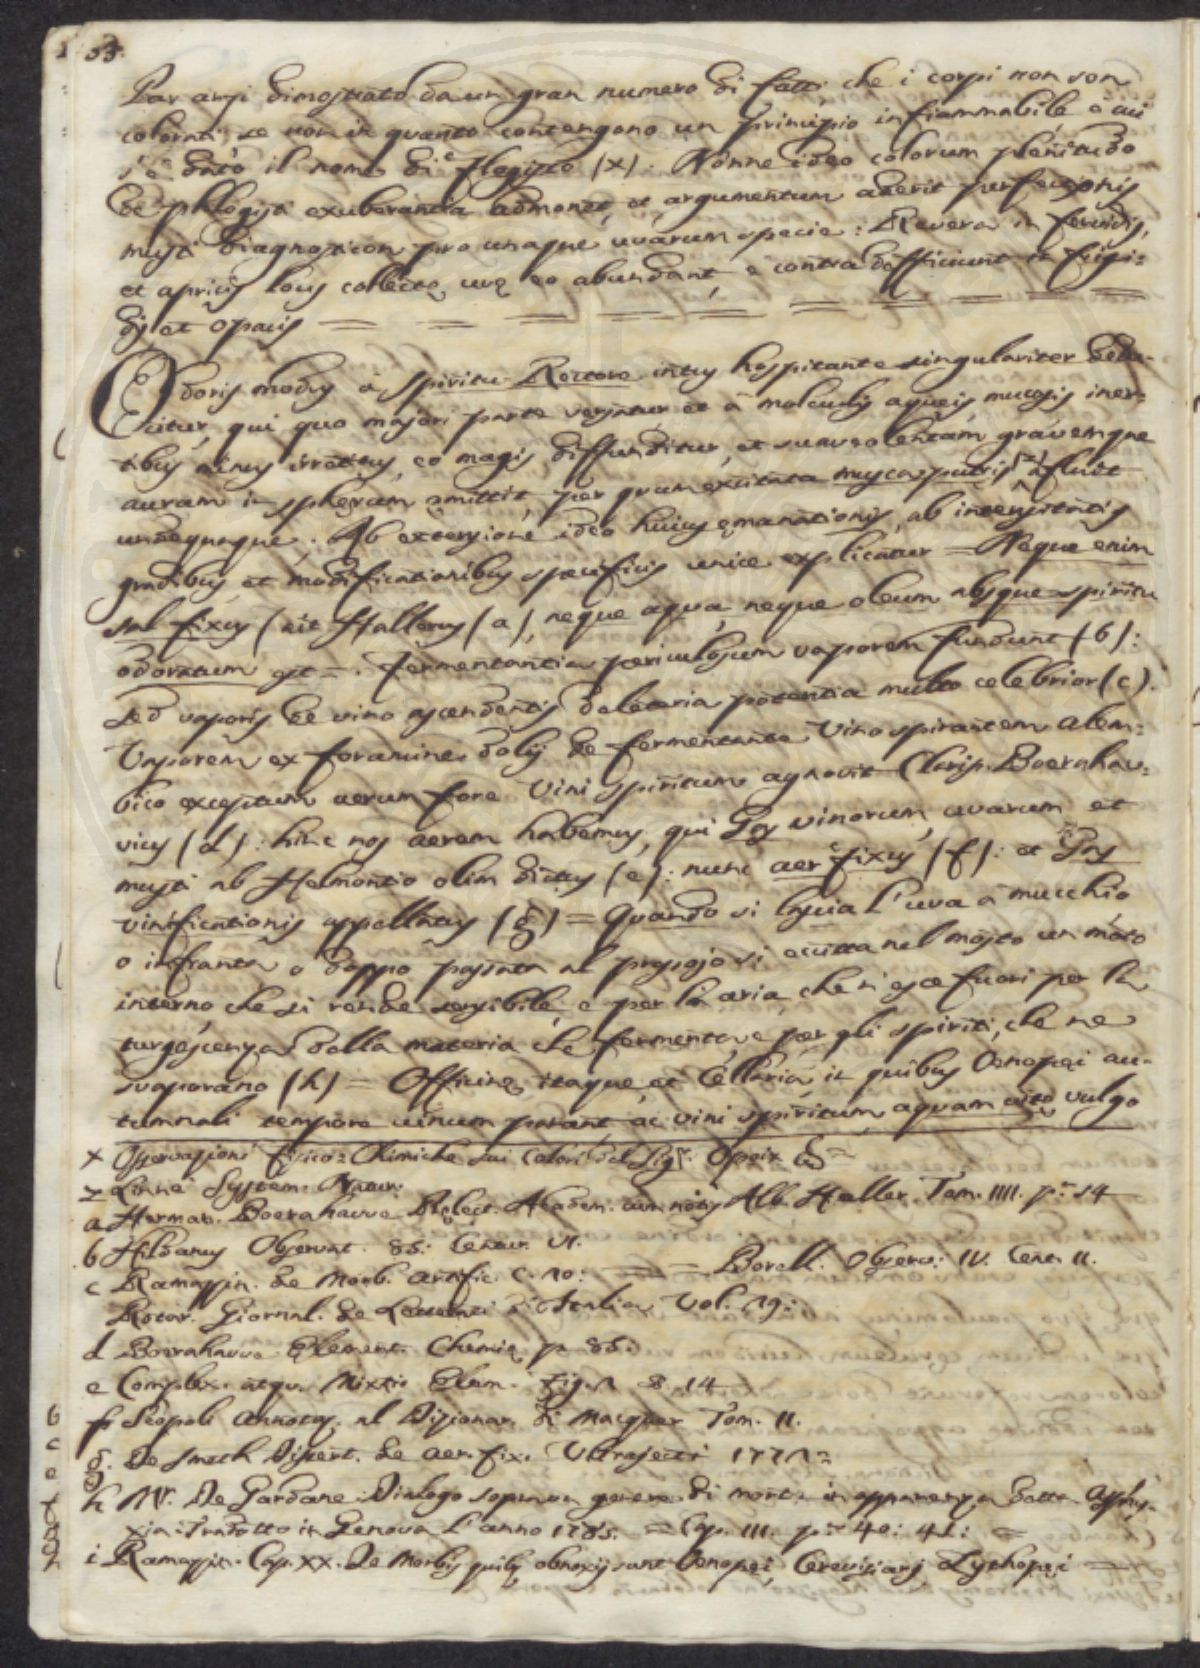 Par anzi dimostrato da un gran numero di fatti che i corpi non son
colorati, se non in quanto contengono un principio infiammabile a cui
s'è dato il nome di Flogisto (x). Nonne ideo colorum plenitudo
de phlogisti exuberantia admonet, et argumentum aderit perfectionis
musti diagnosticon pro unaque uvarum specie: Revera in fervidis,
et apricis locis collectę uvę eo abundant, e contra deficiunt in frigi=
dis et opacis = = = = = = = = =
Odoris modus à Spiritu Rectore intus hospitante singulariter dedu-
citur, qui quo majori parte versatur et à moleculis aqueis, mucosis iner-
tibus minus irretitus, eo magis diffunditur, et suaveolentam, gravemque
auram in spheram emittit, per quam excitata musca putris (z) affluit
undequaque. Ab extensione ideo hujus emanationis, ab intensitatis
gradibus et modificationibus specificis unice explicatur = Neque enim
sal fixus (ait Hallerus (a), neque aqua, neque oleum absque spiritu
odoratum est =. Fermentantia periculosum vaporem fundunt (b):
sed vaporis de vino ascendentis deleteria potentia multo celebrior (c).
Vaporem ex foramine dolij de fermentante Vino spirantem Alem=
bico exceptum verum fore Vini Spiritum agnovit Claris. Boerahav=
vius (d): hinc nos aerem habemus, qui Gas vinorum, uvarum et
musti ab Helmontio olim dictus (e): nunc aer fixus (f): et Gas
vinificationis appellatus (g) = Quando si lascia l'uva a mucchio
o infranta, o doppo passata al pressojo si eccitta nel mosto un moto
interno che si rende sensibile, e per l'aria, che n'esce fuori per la
turgescenza dalla materia che fermenta, e per gli spiriti, che ne
svaporano (h) = Officinę itaque, et Cellaria, in quibus Oenopęi au-
tumnali tempore vinum parant, ac vini spiritum, aquam vitę vulgo
x Osservazioni Fisico=Chimiche sui Colori del Sigr. Opoix
z Linné System. Natur.
a Herman. Boerahavve Prelect. Academ. cum notis Alb. Haller. Tom. IIII. p. 14
b Hildanus Observat. 85. Centur. VI.
c Ramazzin. de Morb. Artific. C. 20: = = Borell. Observ: IV. Cent. II.
Rotar. Giornal. de Letterati d'Italia Vol. 19:
d Boerahavve Element. Chemię p. 85.
e Complex. atqu. Mixtio Elem. Fig.
f Scopoli Annotaz. al Dizionar. di Macquer Tom. II.
g. De Smeth Disert. de aer. fix. Ultrajecti 1772
h Mr. De Gardane Dialogo sopra un genere di morte in apparenza detta Asfis-
xia: Tradotto in Genova l'anno 1785. = Cap. III. p: 40: 41: =
i Ramazzin. Cap. XX. De Morbis quibus obnoxij sunt Oenopęi, Cerevisiarij Zythopęi =
b
c
e
f
g
h